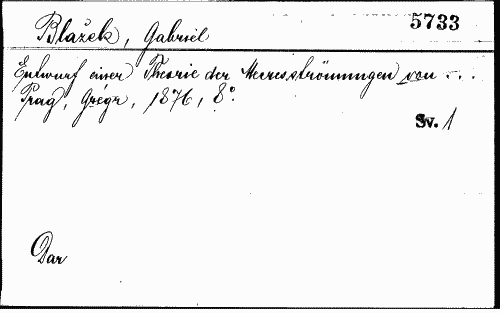 Blažek, Gabriel
5733
Entwurf einer Theorie der Meeresströmungen von ...
Prag, Grégr, 1876, 8°.
Sv. 1
Dar